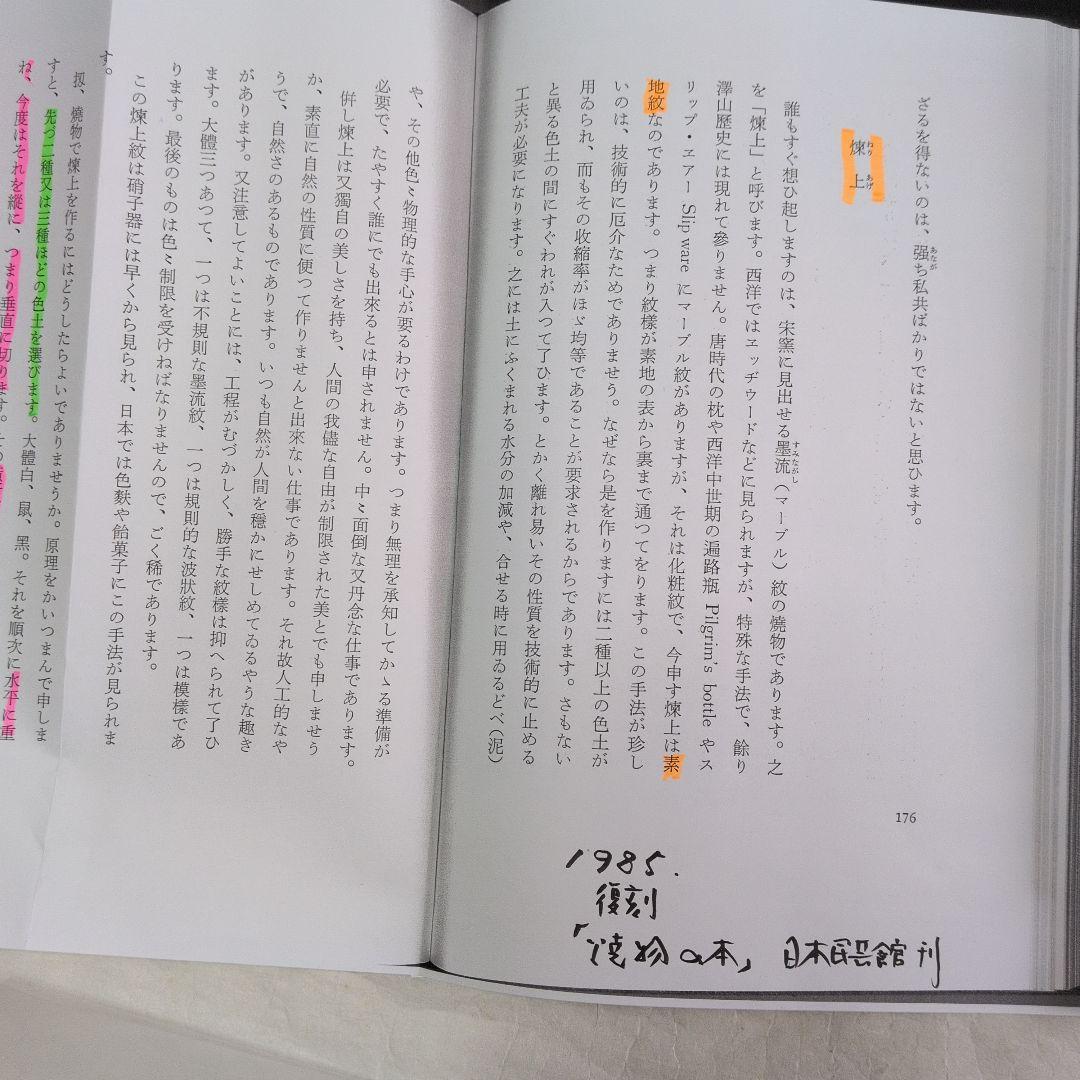 ざるを得ないのは、强ち私共ばかりではないと思ひます。
あなが
煉上
ねりあげ
誰もすぐ想ひ起しますのは、宋窯に見出せる墨流(マーブル)紋の燒物であります。之
すみながし
を「煉上」と呼びます。西洋ではヱッヂウードなどに見られますが、特殊な手法で、餘り
澤山歷史には現れて參りません。唐時代の枕や西洋中世期の遍路瓶 Pilgrim's bottle やス
リップ・ヱアー Slip ware にマーブル紋がありますが、それは化粧紋で、今申す煉上は素
地紋なのであります。つまり紋樣が素地の表から裏まで通つてをります。この手法が珍し
いのは、技術的に厄介なためでありませう。なぜなら是を作りますには二種以上の色土が
用ゐられ、而もその收縮率がほゞ均等であることが要求されるからであります。さもない
と異る色土の間にすぐわれが入つて了ひます。とかく離れ易いその性質を技術的に止める
工夫が必要になります。之には土にふくまれる水分の加減や、合せる時に用ゐるどべ(泥)
176
や、その他色〻物理的な手心が要るわけであります。つまり無理を承知してかゝる準備が
必要で、たやすく誰にでも出來るとは申されません。中〻面倒な又丹念な仕事であります。
倂し煉上は又獨自の美しさを持ち、人間の我儘な自由が制限された美とでも申しませう
か、素直に自然の性質に便つて作りませんと出來ない仕事であります。それ故人工的なや
うで、自然さのあるものであります。いつも自然が人間を穩かにせしめてゐるやうな趣き
があります。又注意してよいことには、工程がむづかしく、勝手な紋樣は抑へられて了ひ
ます。大體三つあつて、一つは不規則な墨流紋、一つは規則的な波狀紋、一つは模樣であ
ります。最後のものは色〻制限を受けねばなりませんので、ごく稀であります。
この煉上紋は硝子器には早くから見られ、日本では色麩や飴菓子にこの手法が見られま
す。
扨、燒物で煉上を作るにはどうしたらよいでありませうか。原理をかいつまんで申しま
すと、先づ二種又は三種ほどの色土を選びます。大體白、鼠、黑。それを順次に水平に重
ね、今度はそれを縱に、つまり垂直に切ります。その
1985.
復刻
「焼物の本」 日本民芸館刊